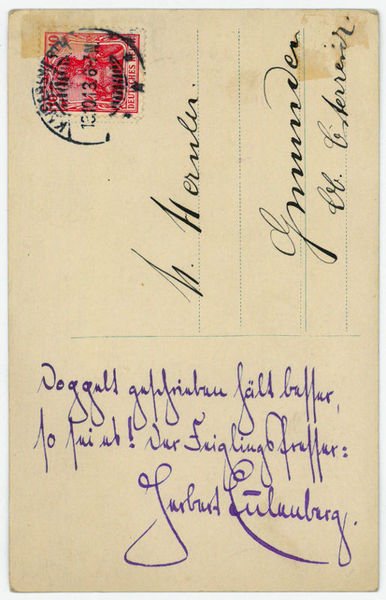 DEUTSCHES REICH
10
13.10.13.6-7N
Gmunden
Ob. Österreich.
Doppelt geschrieben hält besser,
so sei es! Der Feiglingsfresser:
Herbert Eulenberg.